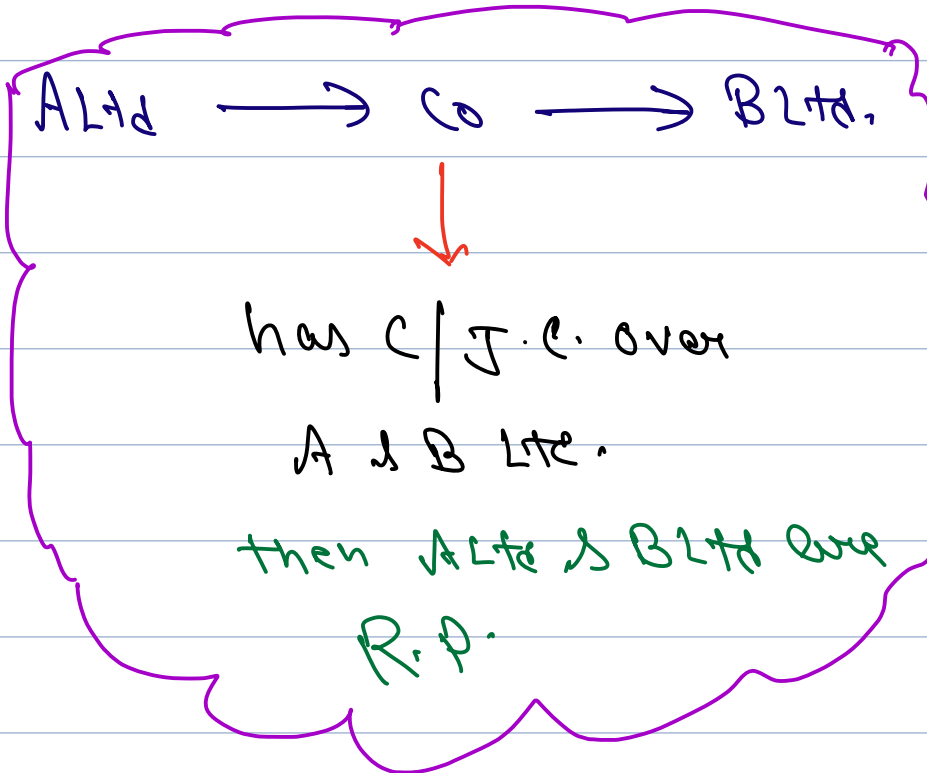 A Ltd → Co → B Ltd.
↓
has C/J.C. over
A & B Ltd.
then A Ltd & B Ltd are
R.P.